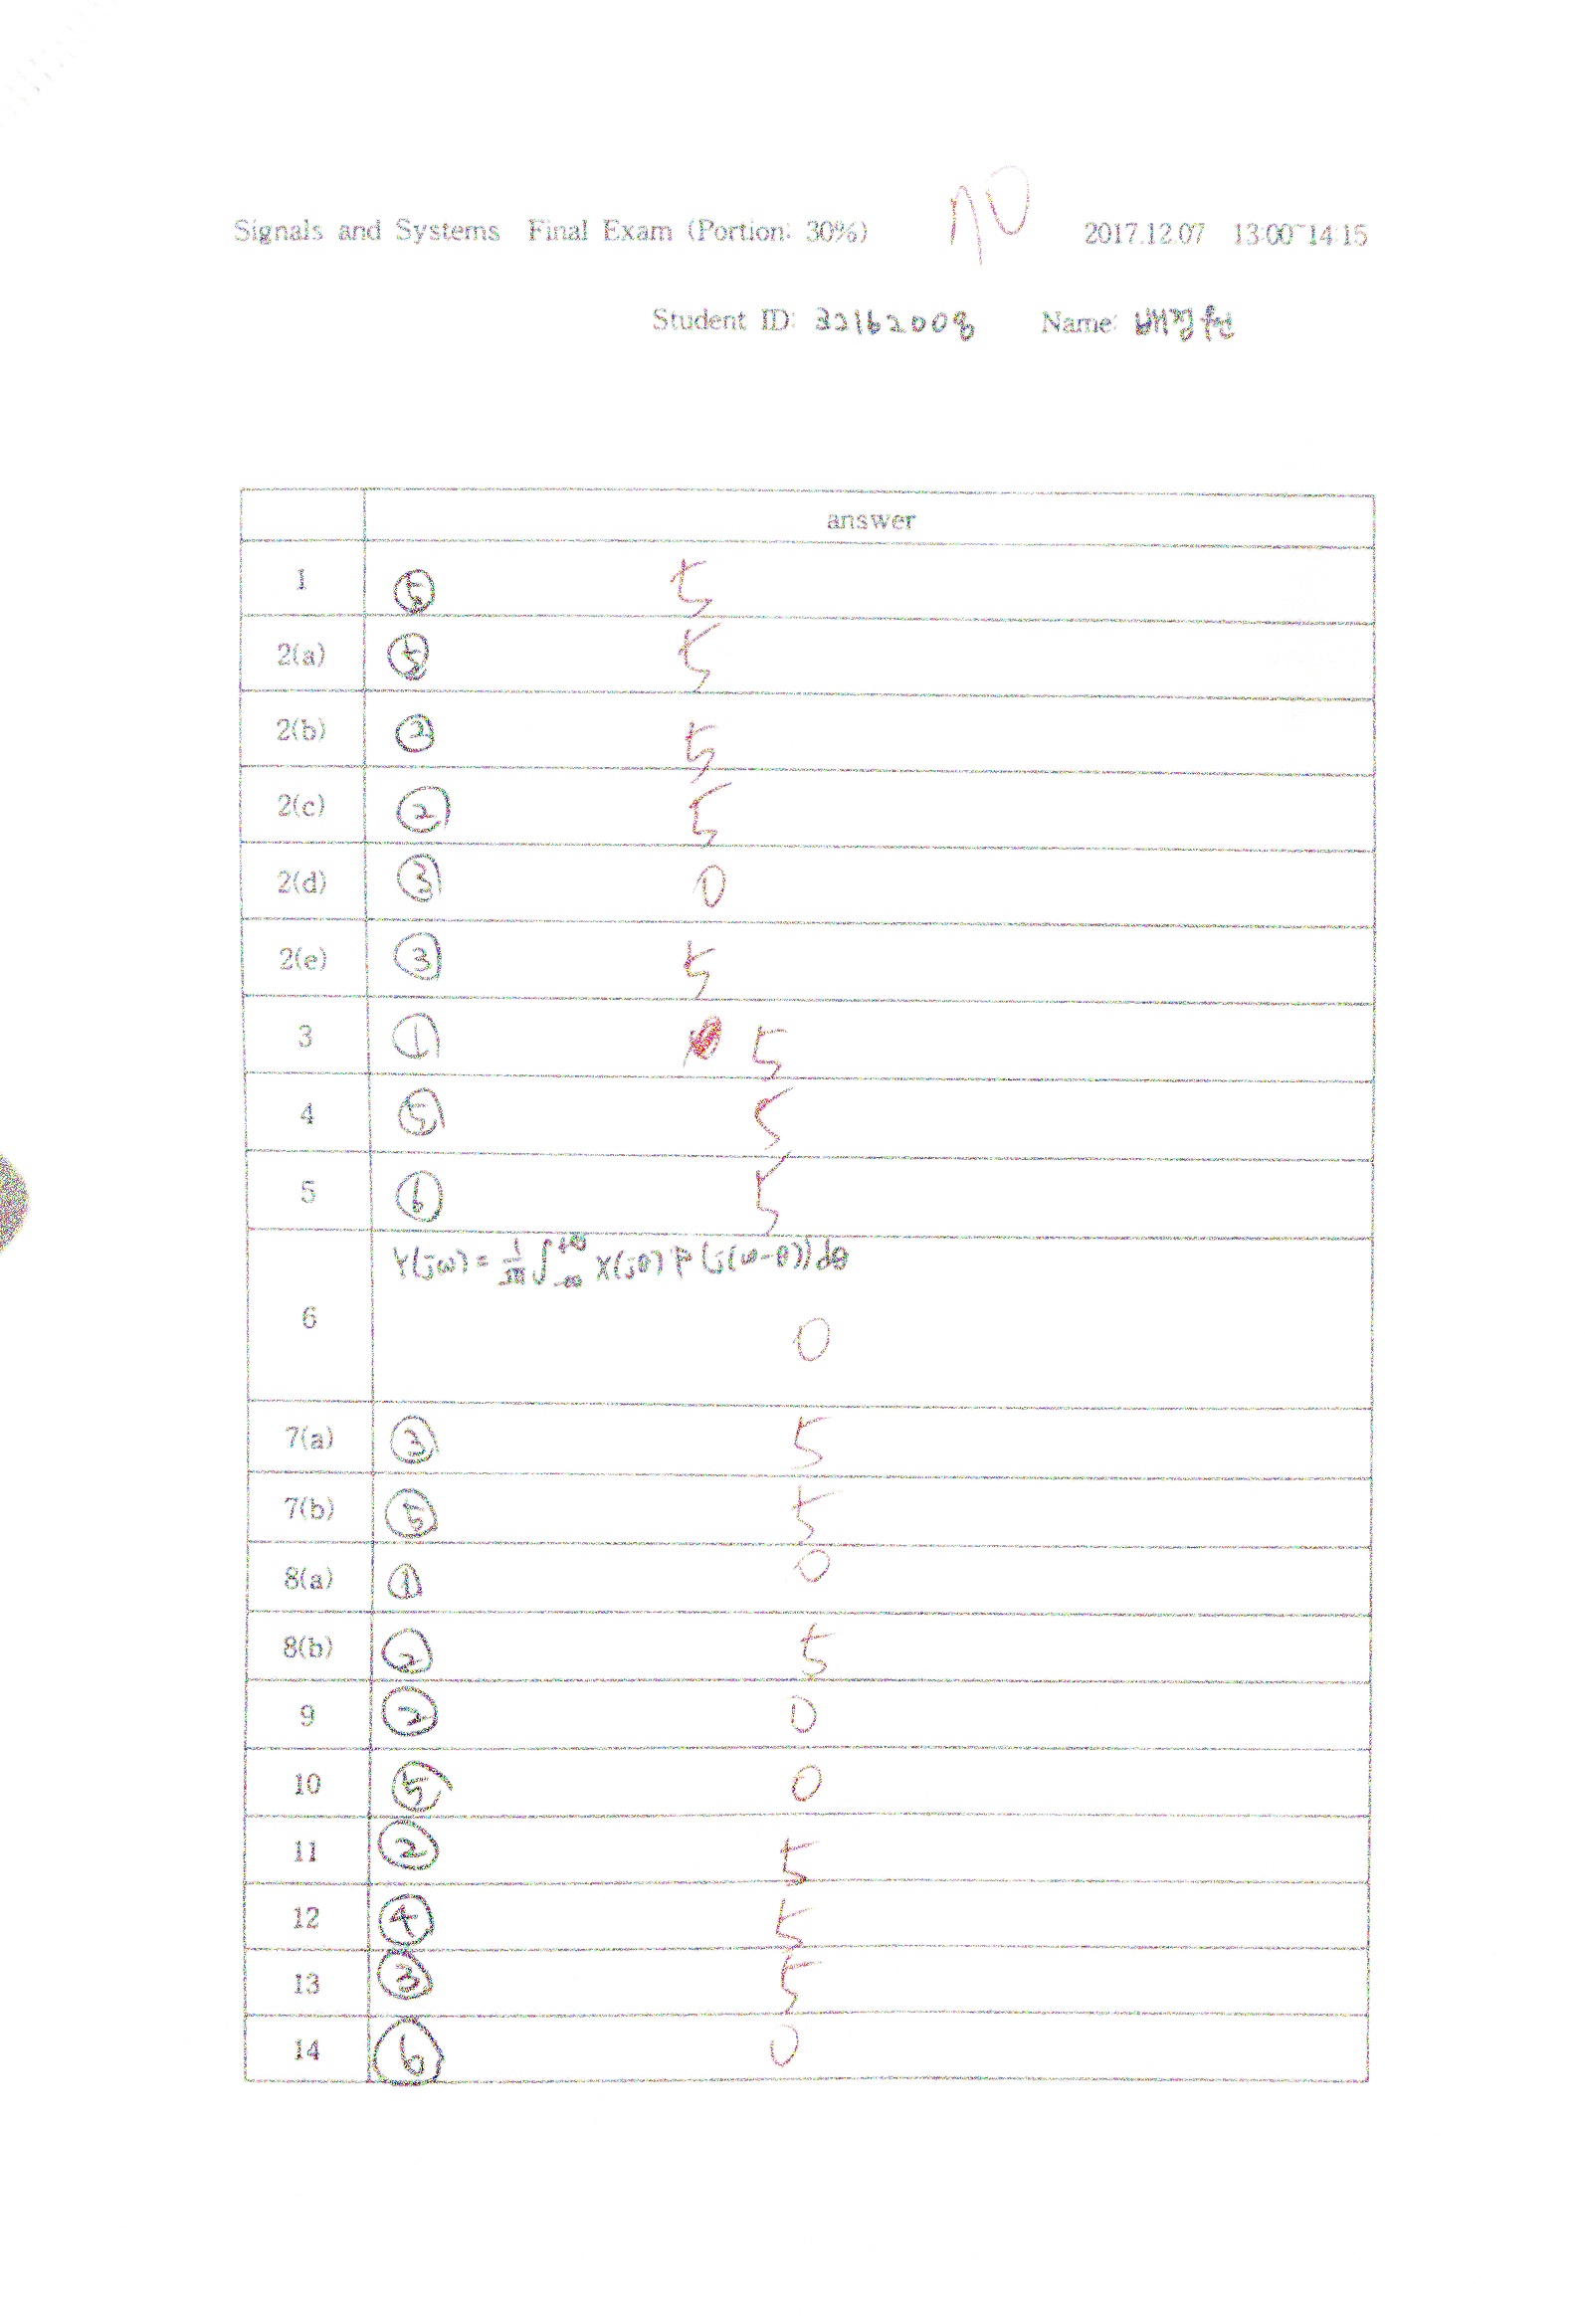 Signals and Systems Final Exam (Portion: 30%) 70 2017.12.07 13:00~14:15
Student ID: 32162008 Name:
answer
1 ⑤ 5
2(a) ⑤ 5
2(b) ② 5
2(c) ② 5
2(d) ③ 0
2(e) ③ 5
3 ① 5
4 ⑤ 5
5 ⑥ 5
6 Y(jω) = 1/2π ∫_{-∞}^{+∞} X(jθ) P(j(ω-θ)) dθ
0
7(a) ③ 5
7(b) ⑤ 5
8(a) ① 0
8(b) ② 5
9 ② 0
10 ⑤ 0
11 ② 5
12 ④ 5
13 ③ 5
14 ⑥ 0